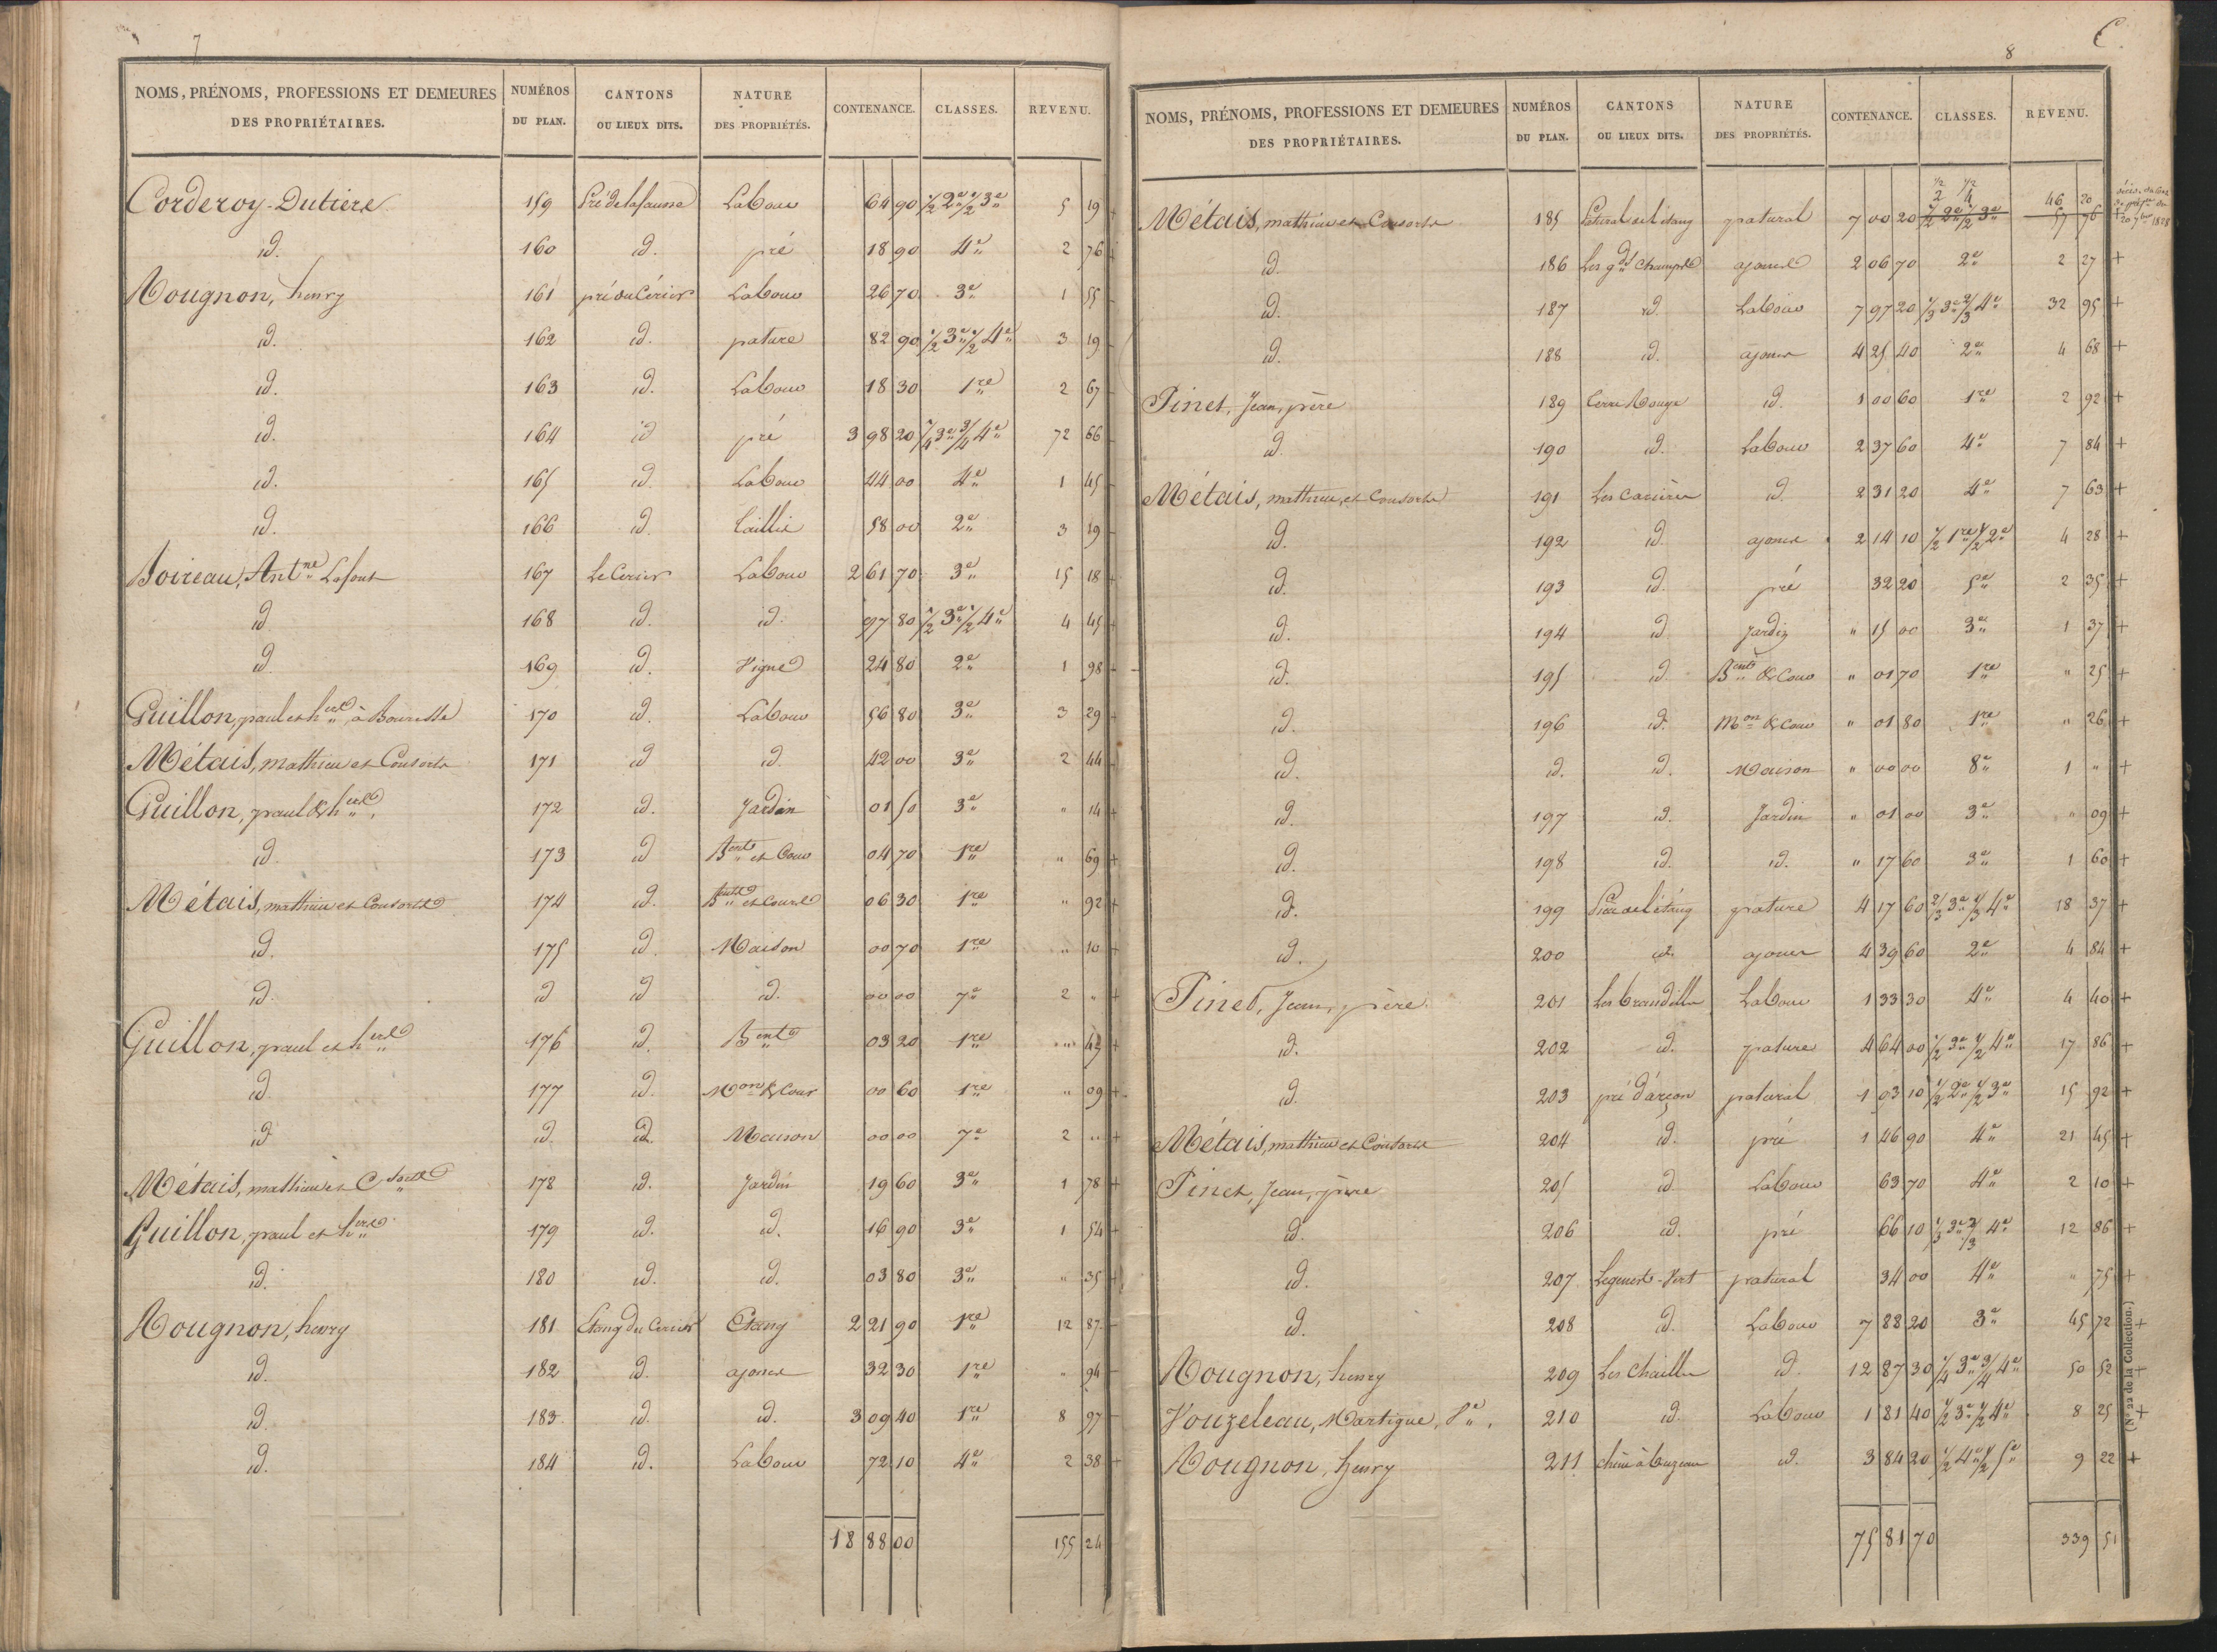 7
NOMS, PRÉNOMS, PROFESSIONS ET DEMEURES DES PROPRIÉTAIRES. NUMÉROS DU PLAN. CANTONS OU LIEUX DITS. NATURE DES PROPRIÉTÉS. CONTENANCE. CLASSES. REVENU.
Corderoy-Dutiers 159 Pré de la fausse Labour 64 90 1/2 2e 1/2 3e 5 19
id. 160 id. pré 18 90 4e 2 76
Nougnon, henry 161 pré du Cérier Labour 26 70 3e 1 55
id. 162 id. pature 82 90 1/2 3e 1/2 4e 3 19
id. 163 id. Labour 18 30 1re 2 67
id. 164 id pré 3 98 20 1/4 3e 3/4 4e 72 66
id. 165 id. Labour 44 00 4e 1 45
id. 166 id. Taillis 58 00 2e 3 19
Boireau, Antne Lafont 167 Le Cerier Labour 2 61 70 3e 15 18
id 168 id. id. 97 80 1/2 3e 1/2 4e 4 45
id 169 id. Vigne 24 80 2e 1 98
Guillon, paul et hers à Bouresse 170 id. Labour 56 80 3e 3 29
Métais, mathieu et Consorts 171 id id. 42 00 3e 2 44
Guillon, paul & hers 172 id. Jardin 01 50 3e " 14
id 173 id Bents et Cour 04 70 1re " 69
Métais, mathieu et Consorts 174 id. Bents et Cours 06 30 1re " 92
id. 175 id. Maison 00 70 1re " 10
id. id id id. 00 00 7e 2 "
Guillon, paul et hers 176 id. Bents 03 20 1re " 47
id 177 id. Mon & Cour 00 60 1re " 09
id id. id. Maison 00 00 7e 2 "
Métais, mathieu et Csorts 178 id. Jardin 19 60 3e 1 78
Guillon, paul et hers 179 id. id. 16 90 3e 1 54
id. 180 id. id. 03 80 3e " 35
Nougnon, henry 181 Etang du Cerier Etang 2 21 90 1re 12 87
id. 182 id. ajoncs 32 30 1re " 94
id. 183 id. id. 3 09 40 1re 8 97
id. 184 id. Labour 72 10 4e 2 38
18 88 00 155 24
8 C.
NOMS, PRÉNOMS, PROFESSIONS ET DEMEURES DES PROPRIÉTAIRES. NUMÉROS DU PLAN. CANTONS OU LIEUX DITS. NATURE DES PROPRIÉTÉS. CONTENANCE. CLASSES. REVENU.
1/2 2 1/2 4 46 20
Métais, mathieu et Consorts 185 Patural de l'étang patural 7 00 20 1/2 2e 1/2 3e 57 76
id. 186 Les gds Champs ajoncs 2 06 70 2e 2 27
id. 187 id. Labour 7 97 20 1/3 3e 2/3 4e 32 95
id. 188 id. ajoncs 4 25 40 2e 4 68
Pinet, Jean, père 189 Terre Rouge id. 1 00 60 1re 2 92
id. 190 id. Labour 2 37 60 4e 7 84
Métais, mathieu et Consorts 191 Les Carrières id. 2 31 20 4e 7 63
id. 192 id. ajoncs 2 14 10 1/2 1re 1/2 2e 4 28
id. 193 id. pré 32 20 5e 2 35
id. 194 id. Jardin " 15 00 3e 1 37
id. 195 id. Bents & Cour " 01 70 1re " 25
id. 196 id. Mon & Cour " 01 80 1re " 26
id. id. id. Maison " 00 00 8e 1 "
id. 197 id. Jardin " 01 00 3e " 09
id. 198 id. id. " 17 60 3e 1 60
id. 199 Pièce de l'étang pature 4 17 60 2/3 3e 1/3 4e 18 37
id. 200 id. ajoncs 4 39 60 2e 4 84
Pinet, Jean, père 201 Labour 1 33 30 4e 4 40
id. 202 id. pature 4 64 00 1/2 3e 1/2 4e 17 86
id. 203 pré d'arçon patural 1 93 10 1/2 2e 1/2 3e 15 92
Métais, mathieu et Consorts 204 id. pré 1 46 90 4e 21 45
Pinet, Jean, père 205 id Labour 63 70 4e 2 10
id. 206 id. pré 66 10 1/3 3e 2/3 4e 12 86
id. 207 patural 34 00 4e " 75
id. 208 id. Labour 7 88 20 3e 45 72
Nougnon, henry 209 Les Chailles id. 12 87 30 1/4 3e 3/4 4e 50 52
Vouzeleau, Martigue, Ve. 210 id. Labour 1 81 40 1/2 3e 1/2 4e 8 25
Nougnon, henry 211 id. 3 84 20 1/2 4e 1/2 5e 9 22
75 81 70 339 51
(No 22 de la Collection.)